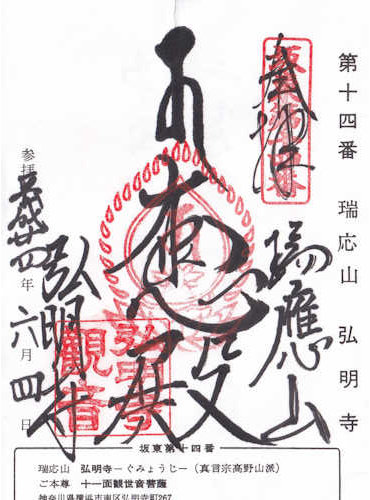 第十四番 瑞応山 弘明寺
奉拝
瑞應山
殿
弘明寺
参拝 平成廿四年六月四日
弘明寺
觀音
坂東第十四番
瑞応山 弘明寺―ぐみょうじ―（真言宗高野山派）
ご本尊 十一面観世音菩薩
神奈川県横浜市南区弘明寺町267